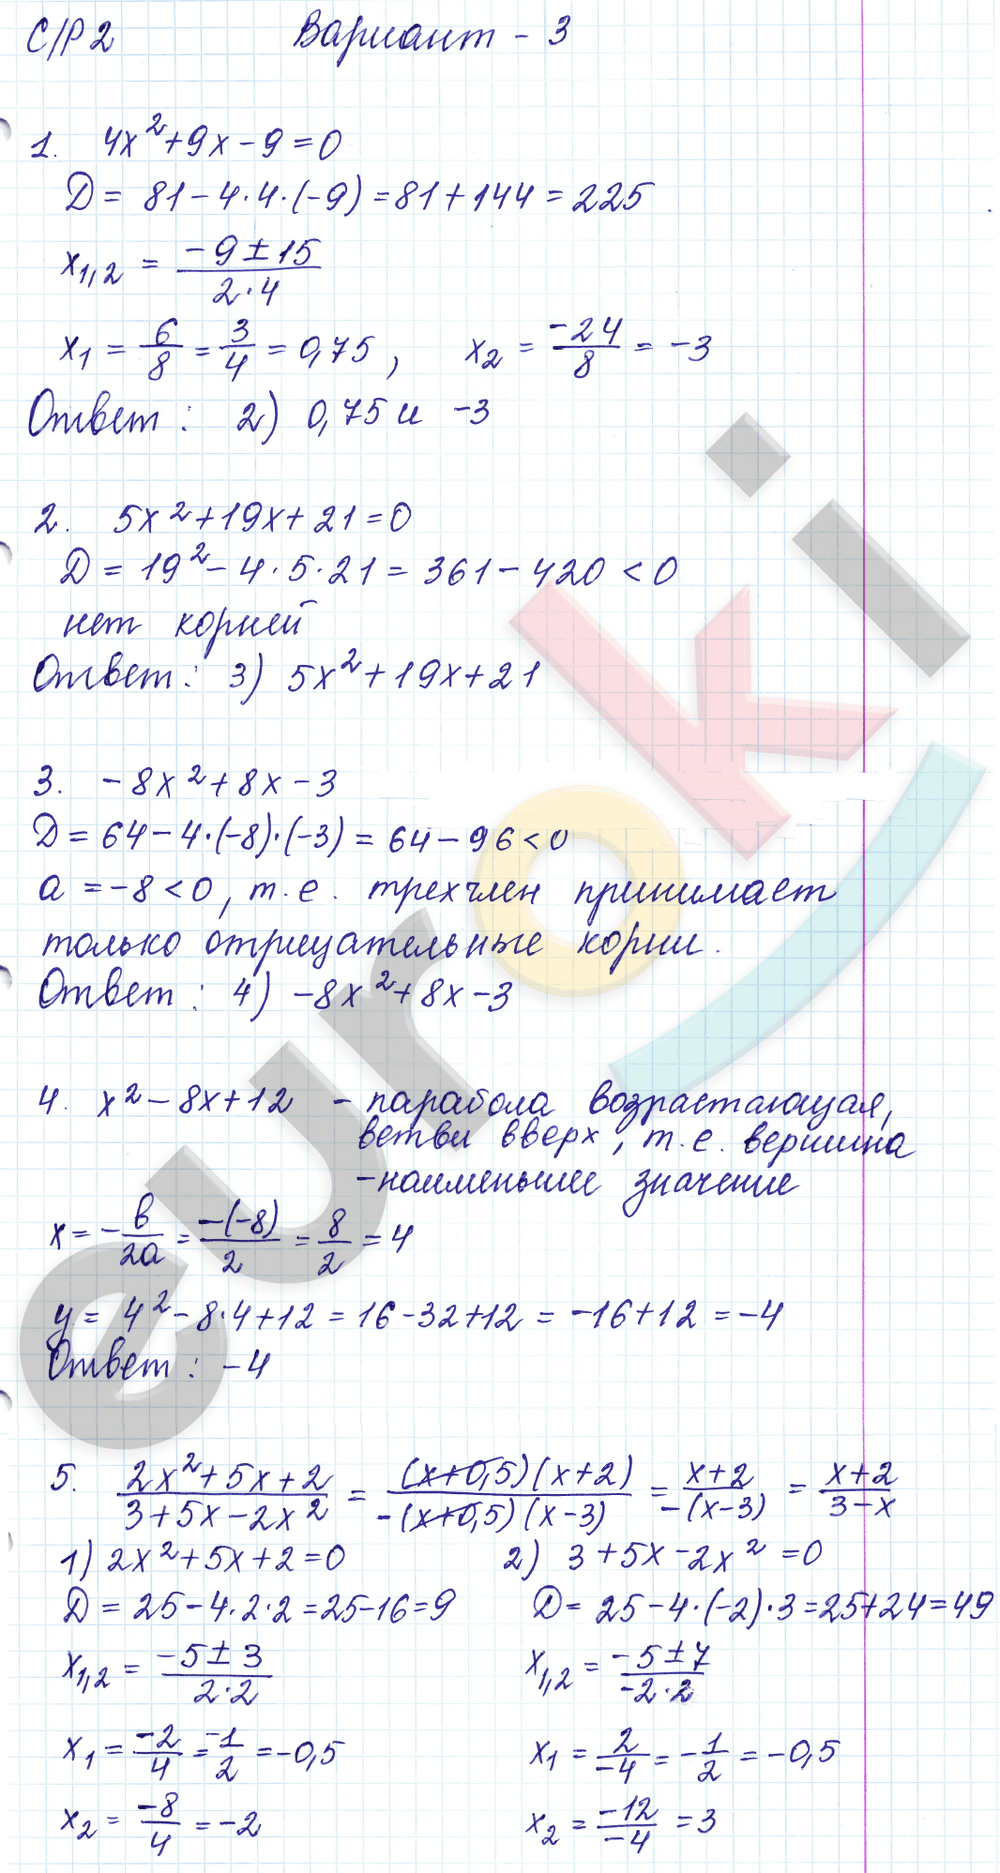 С/Р 2 Вариант - 3
1. 4x²+9x-9=0
D = 81-4·4·(-9)=81+144=225
x₁,₂ = (-9±15)/(2·4)
x₁ = 6/8 = 3/4 = 0,75, x₂ = -24/8 = -3
Ответ: 2) 0,75 и -3
2. 5x²+19x+21=0
D = 19²-4·5·21=361-420<0
нет корней
Ответ: 3) 5x²+19x+21
3. -8x²+8x-3
D = 64-4·(-8)·(-3)=64-96<0
a =-8<0, т.е. трехчлен принимает
только отрицательные корни.
Ответ: 4) -8x²+8x-3
4. x²-8x+12 - парабола возрастающая,
ветви вверх, т.е. вершина
-наименьшее значение
x = -в/2a = -(-8)/2 = 8/2 = 4
y = 4²-8·4+12=16-32+12=-16+12=-4
Ответ: -4
5. (2x²+5x+2)/(3+5x-2x²) = (x+0,5)(x+2)/-(x+0,5)(x-3) = (x+2)/-(x-3) = (x+2)/(3-x)
1) 2x²+5x+2=0 2) 3+5x-2x²=0
D = 25-4·2·2=25-16=9 D = 25-4·(-2)·3=25+24=49
x₁,₂ = (-5±3)/(2·2) x₁,₂ = (-5±7)/(-2·2)
x₁ = -2/4 = -1/2 = -0,5 x₁ = 2/-4 = -1/2 = -0,5
x₂ = -8/4 = -2 x₂ = -12/-4 = 3
euroki